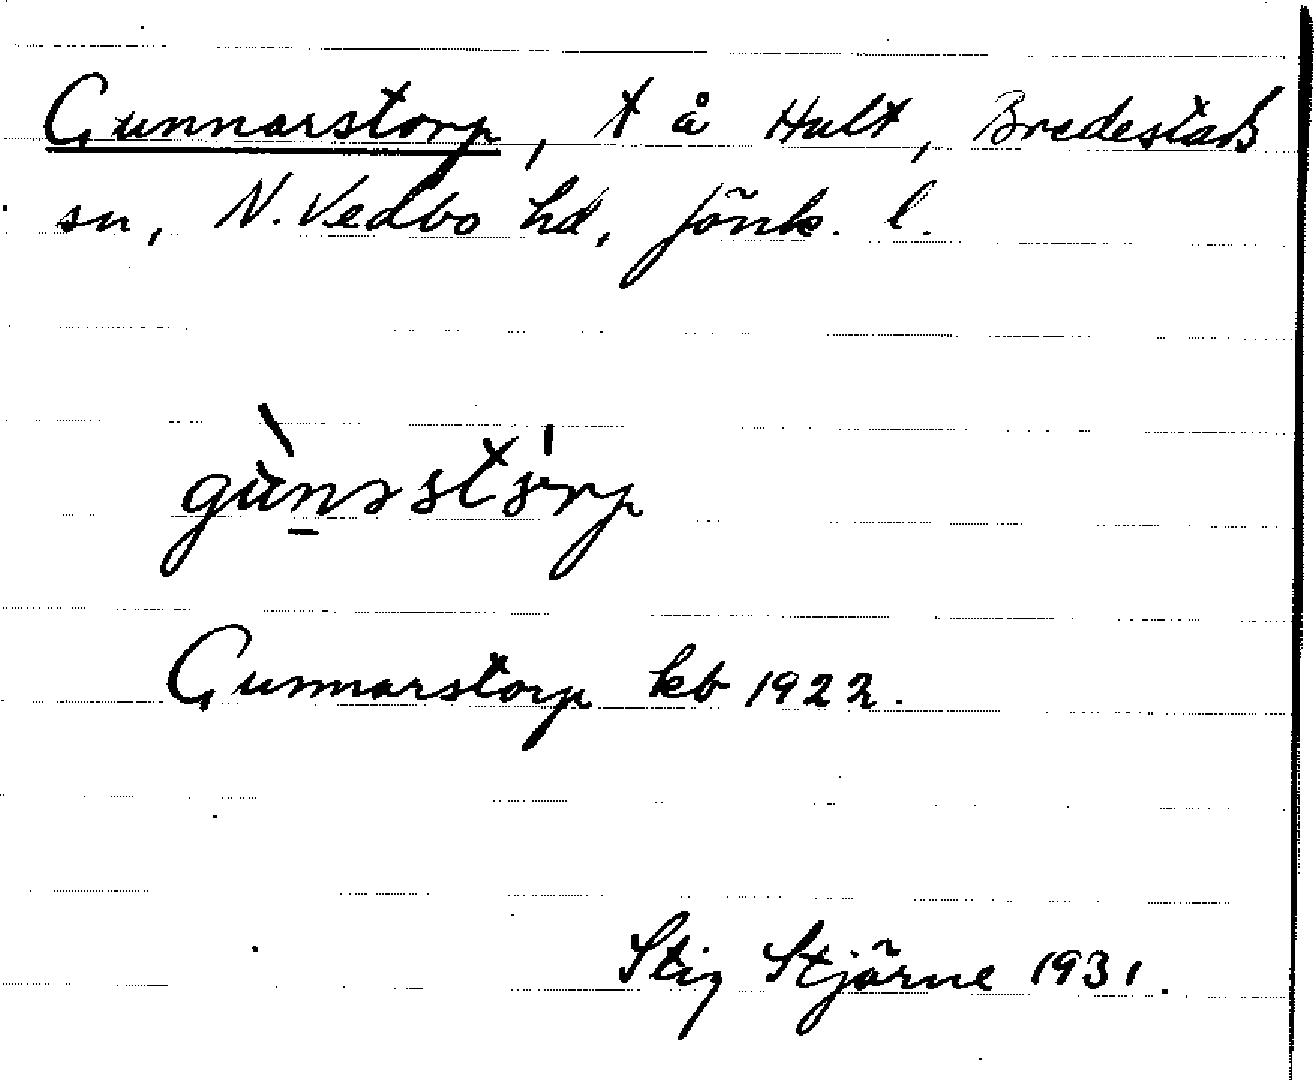 Gunnarstorp, t å Hult, Bredestads
sn, N. Vedbo hd, Jönk. l.
Gunnarstorp kb 1922.
Stig Stjärne 1931.